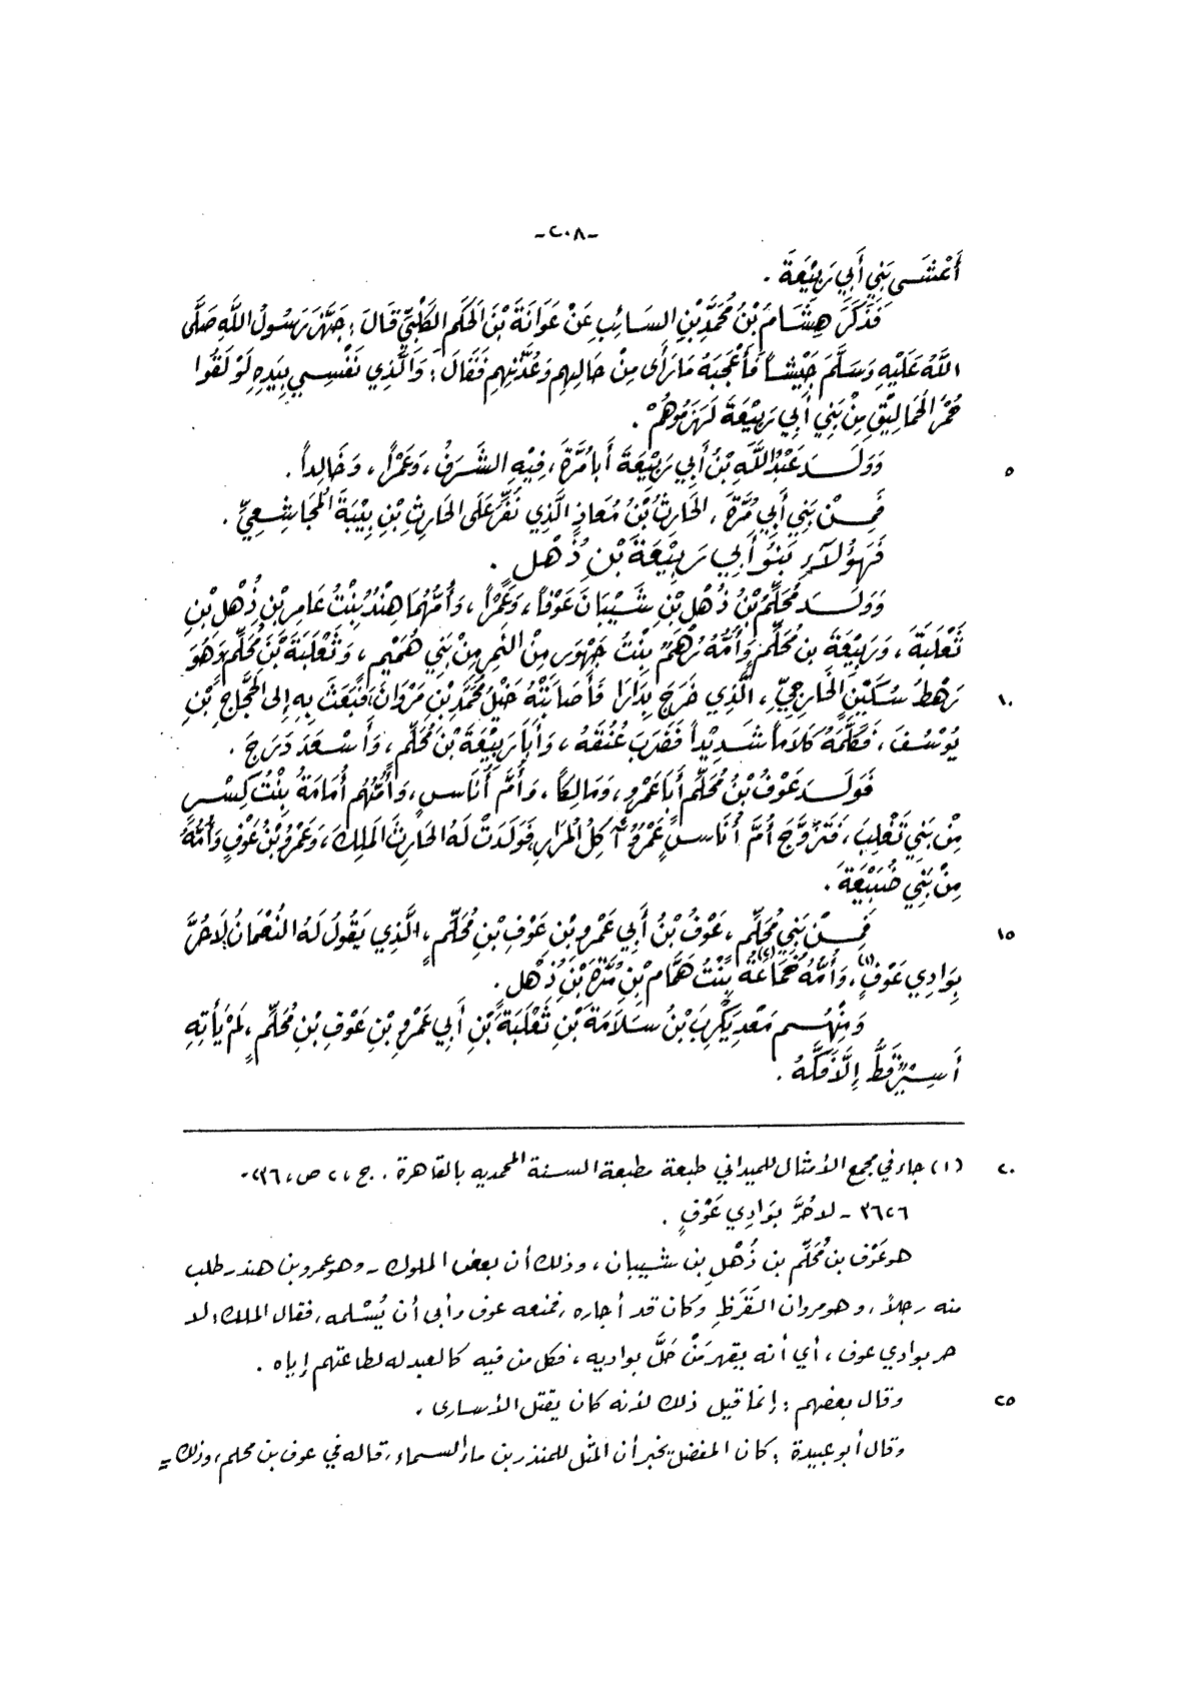 -٢٠٨-
أَعْشَى بَنِي أَبِي رَبِيْعَةَ .
فَذَكَرَ هِشَامُ بْنُ مُحَمَّدِ بْنِ السَائِبِ عَنْ عَوَانَةَ بْنَ الحَكَمِ الكَلْبِيِّ قَالَ : جَهَّزَ رَسُولُ اللَّهِ صَلَّى
اللَّهُ عَلَيْهِ وَسَلَّمَ جَيْشاً فَأَعْجَبَهُ مَا رَأَى مِنْ حَالِهِم وَعُدَّتِهِم فَقَالَ : وَالَّذِي نَفْسِي بِيَدِهِ لَوْ لَقُوا
حُمْرَ الحَمَالِيْقِ مِنْ بَنِي أَبِي رَبِيْعَةَ لَهَزَمُوهُمْ .
٥ وَوَلَـدَ عَبْدُاللَّهِ بْنُ أَبِي رَبِيْعَةَ أَبَا مُرَّةَ ، فِيْهِ الشَّرَفُ ، وَعَمْراً ، وَخَالِداً .
فَمِـنْ بَنِي أَبِي مُرَّةَ ، الحَارِثُ بْنُ مُعَاذٍ الَّذِي نَفَّرَ عَلَى الحَارِثِ بْنِ بِيْبَةَ المُجَاشِعِيِّ .
فَهَؤُلَاَءِ بَنُو أَبِي رَبِيْعَةَ بْنِ ذُهْلٍ .
وَوَلَـدَ مُحَلِّمُ بْنُ ذُهْلِ بْنِ شَيْبَانَ عَوْفاً ، وَعَمْراً ، وَأُمُّهُمَا هِنْدُ بِنْتُ عَامِرِ بْنِ ذُهْلِ بْنِ
ثَعْلَبَةَ ، وَرَبِيْعَةَ بن مُحَلِّمٍ وَأُمُّهُ رُهْمُ بِنْتُ جَهْوَرٍ مِنْ النَمِرِ مِنْ بَنِي هُمَيْمٍ ، وَثَعْلَبَةَ بْنَ مُحَلِّمٍ وَهُوَ
١٠ رَهْطُ سُكَيْنٍ الخَارِجِيِّ ، الَّذِي خَرَجَ بِدَارَا فَأَصَابَتْهُ خَيْلُ مُحَمَّدِ بْنِ مَرْوَانَ فَبَعَثَ بِهِ إِلى الحَجَّاجِ بْنِ
يُوْسُفَ ، فَكَلَّمَهُ كَلَاَماً شَدِيْداً فَضَرَبَ عُنُقَهُ ، وَأَبَا رَبِيْعَةَ بْنَ مُحَلِّمٍ ، وَأَسْعَدَ دَرَجَ .
فَوَلَـدَ عَوْفُ بْنُ مُحَلِّمٍ أَبَا عَمْرٍو ، وَمَالِكاً ، وَأُمَّ أُنَاسٍ ، وَأُمُّهُم أُمَامَةُ بِنْتُ كِسْرٍ
مِنْ بَنِي تَغْلِبَ ، فَتَزَوَّجَ أُمَّ أُنَاسٍ عَمْرٌو آكِلُ المُرَارِ فَوَلَدَتْ لَهُ الحَارِثَ المَلِكَ ، وَعَمْرَو بْنَ عَوْفٍ وَأُمُّهُ
مِنْ بَنِي ضُبَيْعَةَ .
١٥ فَمِـنْ بَنِي مُحَلِّمٍ ، عَوْفُ بْنُ أَبِي عَمْرِو بْنِ عَوْفِ بْنِ مُحَلِّمٍ ، الَّذِي يَقُولُ لَهُ النُعْمَانُ لَا حُرَّ
بِوَادِي عَوْفٍ (١) ، وَأُمُّهُ خُمَاعَةُ (٢) بِنْتُ هَمَّامِ بْنِ مُرَّةَ بْنِ ذُهْلٍ .
وَمِنْهُـم مَعْدِيَكَرِبَ بْنُ سَلَامَةَ بْنِ ثَعْلَبَةَ بْنِ أَبِي عَمْرِو بْنِ عَوْفِ بْنِ مُحَلِّمٍ ، لَمْ يَأْتِهِ
أَسِيْرٌ قَطُّ إِلَّا فَكَّهُ .
٢٠ (١) جاء في مجمع الأمثال للميداني طبعة مطبعة السنة المحمديه بالقاهرة . ج ، ٢ ص ، ٢٣٦ -
٣٦٢٦ - لا حُرَّ بِوَادِي عَوْفٍ .
هو عَوْف بن مُحَلِّم بن ذُهْل بن شيبان ، وذلك أن بعض الملوك - وهو عمرو بن هند - طلب
منه رجلاً ، وهو مروان القَرَظِ وكان قد أجاره ، فمنعه عوف وأبى أن يُسْلمه ، فقال الملك : لا
حر بوادي عوف ، أي أنه يقهر مَنْ حَلَّ بواديه ، فكل من فيه كالعبد له لطاعتهم إياه .
٢٥ وقال بعضهم : إنما قيل ذلك لأنه كان يقتل الأسارى .
وقال أبو عبيدة : كان المفضل يخبر أن المثل للمنذر بن ماء السماء ، قاله في عوف بن محلم ، وذلك =